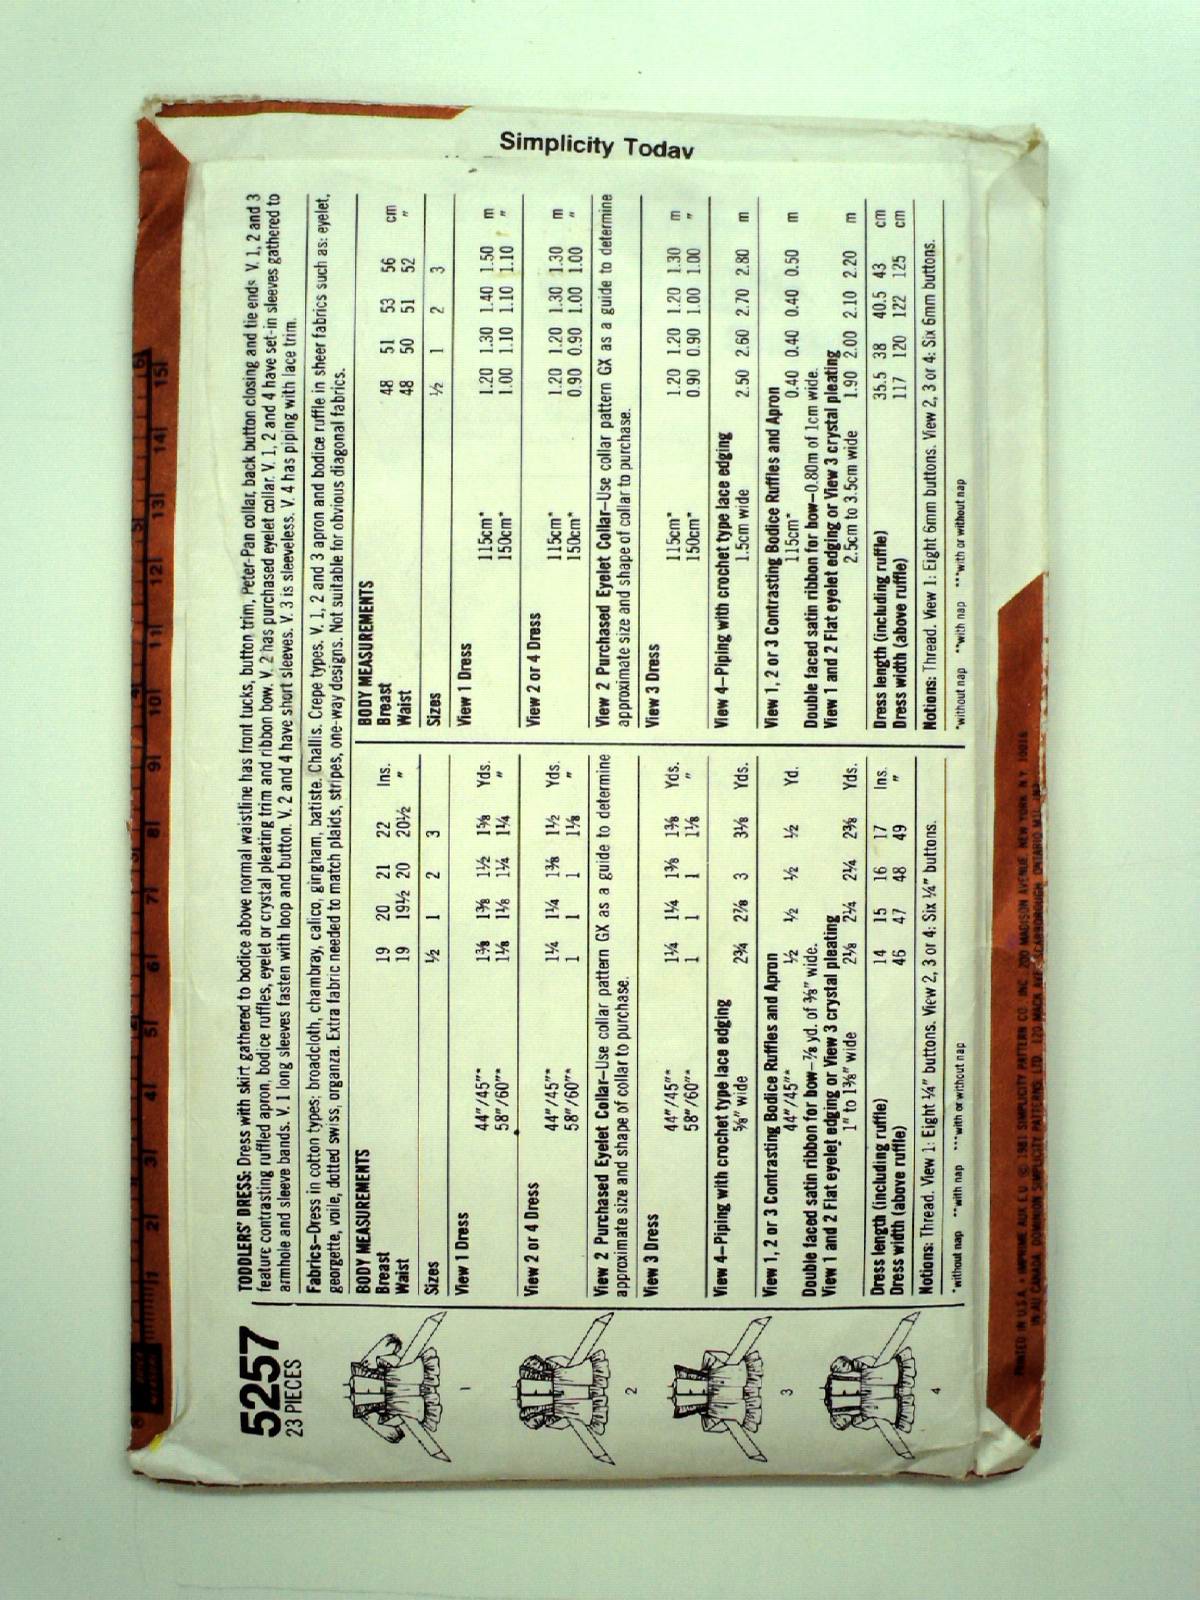 Simplicity Today
5257
23 PIECES
TODDLERS' DRESS: Dress with skirt gathered to bodice above normal waistline has front tucks, button trim, Peter-Pan collar, back button closing and tie ends V. 1, 2 and 3
feature contrasting ruffled apron, bodice ruffles, eyelet or crystal pleating trim and ribbon bow. V. 2 has purchased eyelet collar. V. 1, 2 and 4 have set-in sleeves gathered to
armhole and sleeve bands. V. 1 long sleeves fasten with loop and button. V. 2 and 4 have short sleeves. V. 3 is sleeveless. V. 4 has piping with lace trim.
Fabrics–Dress in cotton types: broadcloth, chambray, calico, gingham, batiste. Challis. Crepe types. V. 1, 2 and 3 apron and bodice ruffle in sheer fabrics such as: eyelet,
georgette, voile, dotted swiss, organza. Extra fabric needed to match plaids, stripes, one-way designs. Not suitable for obvious diagonal fabrics.
BODY MEASUREMENTS
Breast 19 20 21 22 Ins.
Waist 19 19½ 20 20½ "
Sizes ½ 1 2 3
View 1 Dress
44"/45"* 1⅜ 1⅜ 1½ 1⅝ Yds.
58"/60"* 1⅛ 1⅛ 1¼ 1¼ "
View 2 or 4 Dress
44"/45"* 1¼ 1¼ 1⅜ 1½ Yds.
58"/60"* 1 1 1 1⅛ "
View 2 Purchased Eyelet Collar–Use collar pattern GX as a guide to determine
approximate size and shape of collar to purchase.
View 3 Dress
44"/45"* 1¼ 1¼ 1⅜ 1⅜ Yds.
58"/60"* 1 1 1 1⅛ "
View 4–Piping with crochet type lace edging
⅝" wide 2¾ 2⅞ 3 3⅛ Yds.
View 1, 2 or 3 Contrasting Bodice Ruffles and Apron
44"/45"* ½ ½ ½ ½ Yd.
Double faced satin ribbon for bow–⅞ yd. of ⅜" wide.
View 1 and 2 Flat eyelet edging or View 3 crystal pleating
1" to 1⅜" wide 2⅛ 2¼ 2¼ 2⅜ Yds.
Dress length (including ruffle) 14 15 16 17 Ins.
Dress width (above ruffle) 46 47 48 49 "
Notions: Thread. View 1: Eight ¼" buttons. View 2, 3 or 4: Six ¼" buttons.
*without nap **with nap ***with or without nap
BODY MEASUREMENTS
Breast 48 51 53 56 cm
Waist 48 50 51 52 "
Sizes ½ 1 2 3
View 1 Dress
115cm* 1.20 1.30 1.40 1.50 m
150cm* 1.00 1.10 1.10 1.10 "
View 2 or 4 Dress
115cm* 1.20 1.20 1.30 1.30 m
150cm* 0.90 0.90 1.00 1.00 "
View 2 Purchased Eyelet Collar–Use collar pattern GX as a guide to determine
approximate size and shape of collar to purchase.
View 3 Dress
115cm* 1.20 1.20 1.20 1.30 m
150cm* 0.90 0.90 1.00 1.00 "
View 4–Piping with crochet type lace edging
1.5cm wide 2.50 2.60 2.70 2.80 m
View 1, 2 or 3 Contrasting Bodice Ruffles and Apron
115cm* 0.40 0.40 0.40 0.50 m
Double faced satin ribbon for bow–0.80m of 1cm wide.
View 1 and 2 Flat eyelet edging or View 3 crystal pleating
2.5cm to 3.5cm wide 1.90 2.00 2.10 2.20 m
Dress length (including ruffle) 35.5 38 40.5 43 cm
Dress width (above ruffle) 117 120 122 125 cm
Notions: Thread. View 1: Eight 6mm buttons. View 2, 3 or 4: Six 6mm buttons.
*without nap **with nap ***with or without nap
1
2
3
4
1 2 3 4 5 6 7 8 9 10 11 12 13 14 15
PRINTED IN U.S.A. • IMPRIME AUX E.U. © 1981 SIMPLICITY PATTERN CO. INC. 200 MADISON AVENUE, NEW YORK N.Y. 10016
IN/AU CANADA DOMINION SIMPLICITY PATTERNS, LTD. 120 MACK AVE. SCARBOROUGH, ONTARIO